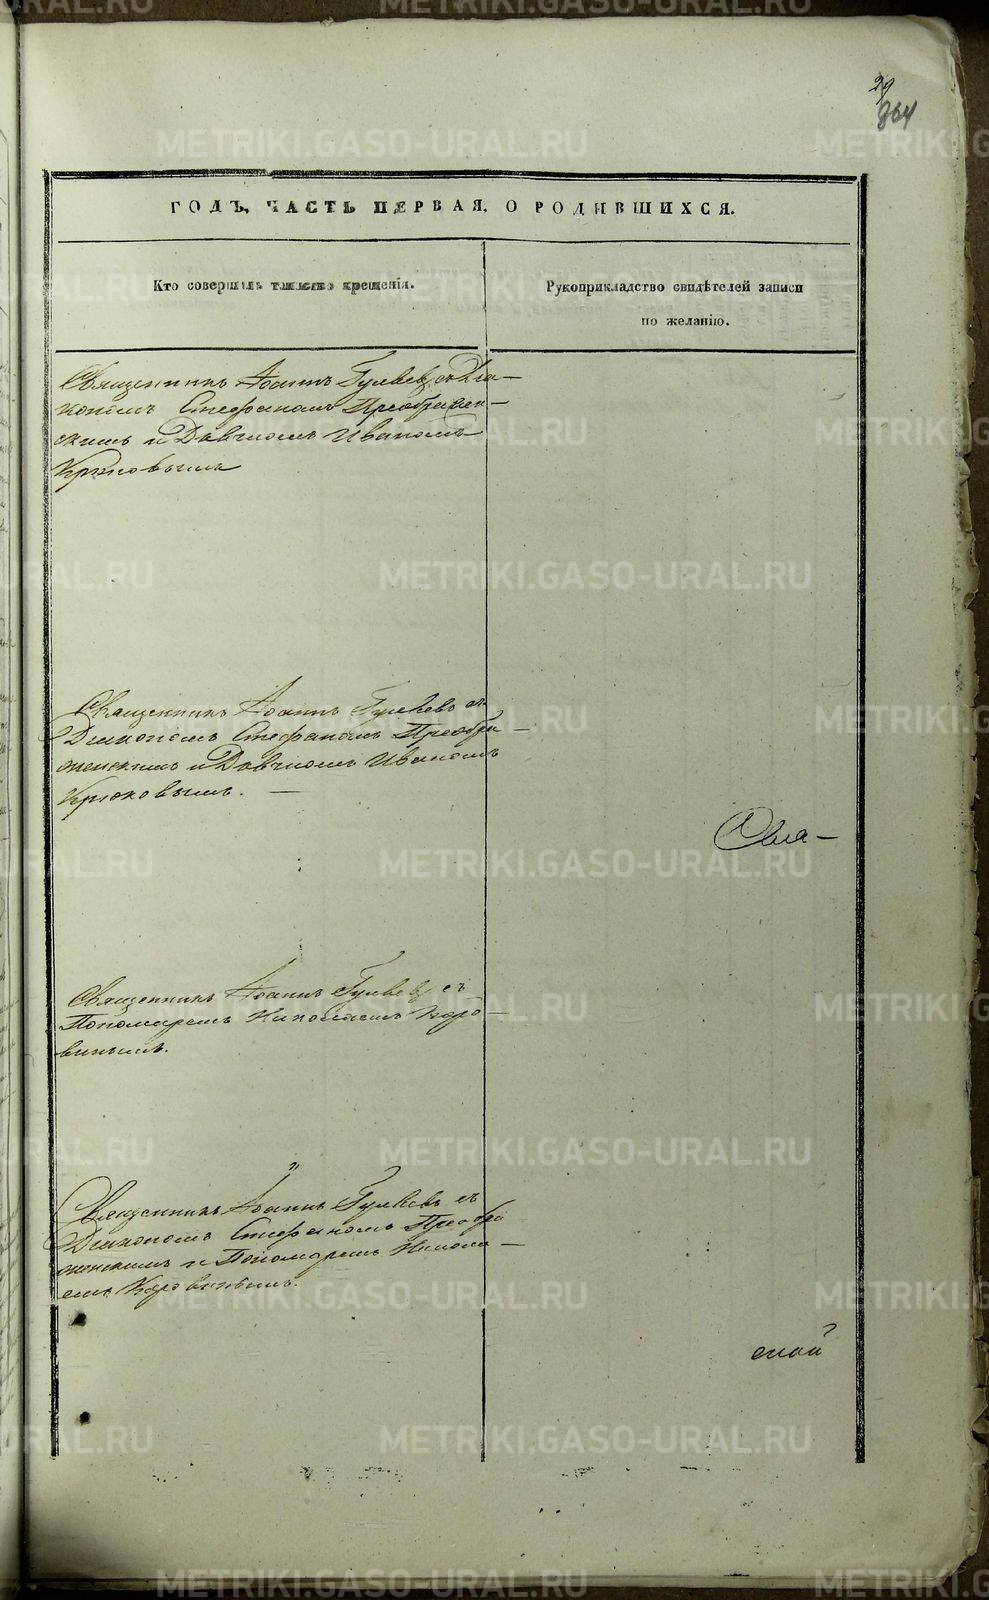 29
364
ГОДЪ, ЧАСТЬ ПЕРВАЯ, О РОДИВШИХСЯ.
Кто совершалъ таинство крещенія.
Рукоприкладство свидѣтелей записи
по желанію.
Священникъ Іоаннъ Гуляевъ, съ Діа—
кономъ Стефаномъ Преображен—
скимъ и Дьячкомъ Иваномъ
Крюковымъ
Священникъ Іоаннъ Гуляевъ съ
Діакономъ Стефаномъ Преобра—
женскимъ и Дьячкомъ Иваномъ
Крюковымъ. —
Священникъ Іоаннъ Гуляевъ съ
Пономаремъ Николаемъ Коро—
винымъ.
Священникъ Іоаннъ Гуляевъ съ
Діакономъ Стефаномъ Преобра
женскимъ и Пономаремъ Никола—
емъ Коровинымъ.
ской
METRIKI.GASO-URAL.RU